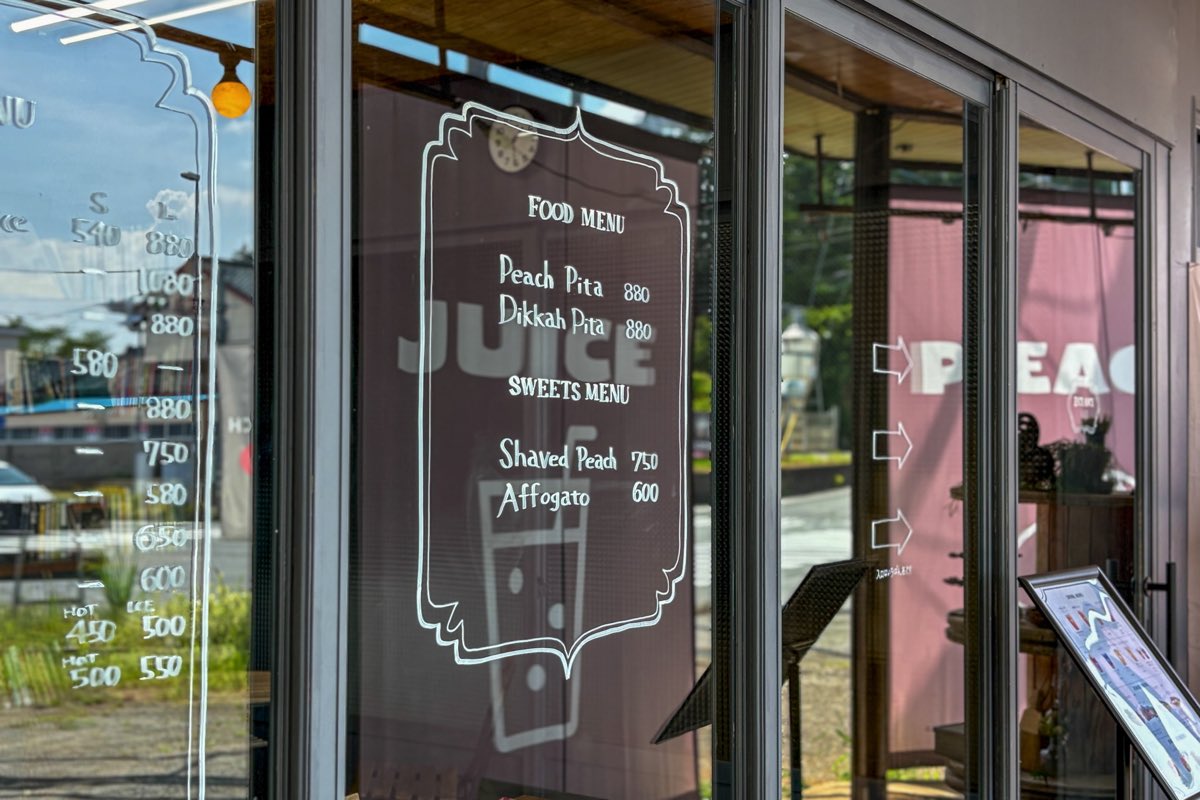 NU
S L
540 880
1080
880
580 –
– 880
– 750
– 580
– 650
– 600
HOT ICE
450 500
HOT
500 550
FOOD MENU
Peach Pita 880
Dikkah Pita 880
JUICE
SWEETS MENU
Shaved Peach 750
Affogato 600
PEAC